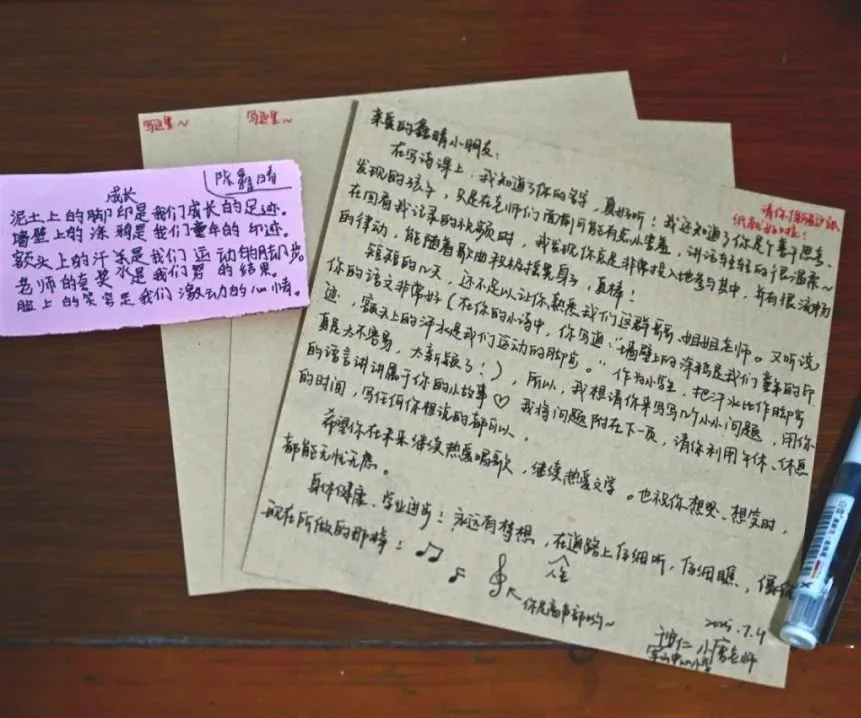 写这里~
写这里~
陈鑫晴
成长
泥土上的脚印是我们成长的足迹。
墙壁上的涂鸦是我们童年的印迹。
额头上的汗水是我们运动的脚步。
老师的奖是我们努的结果。
脸上的笑容是我们激动的心情。
亲爱的鑫晴小朋友：
在写诗课上，我知道了你的名字，真好听！我还知道了你是个善于思考、
发现的孩子，只是在老师们面前可能有点小害羞，讲话轻轻的很温柔~
在回看我记录的视频时，我发现你总是非常投入地参与其中，并有很
的律动，能随着歌曲积极摇摆身子，真棒！
短短的几天，还不足以让你熟悉我们这群哥哥、姐姐老师。又听说
你的语文非常好（在你的小诗中，你写道：“墙壁上的涂鸦是我们童年的印
迹，额头上的汗水是我们运动的脚步。”作为小学生，把汗水比作脚步
真是太不容易，太新颖了！），所以，我想请你来写写几个小小问题，用你
的语言讲讲属于你的小故事♡ 我将问题附在下一页，请你利用午休、休息
的时间，写任何你想说的都可以。
希望你在未来继续热爱唱歌，继续热爱文学。也祝你想哭、想笑时，
都能无忧无虑。
身体健康、学业进步！永远有梦想，在人生道路上仔细听，仔细瞧，像你
现在所做的那样！
你是高声部哟~
2025.7.4
小老师
中心小学
请你
纸